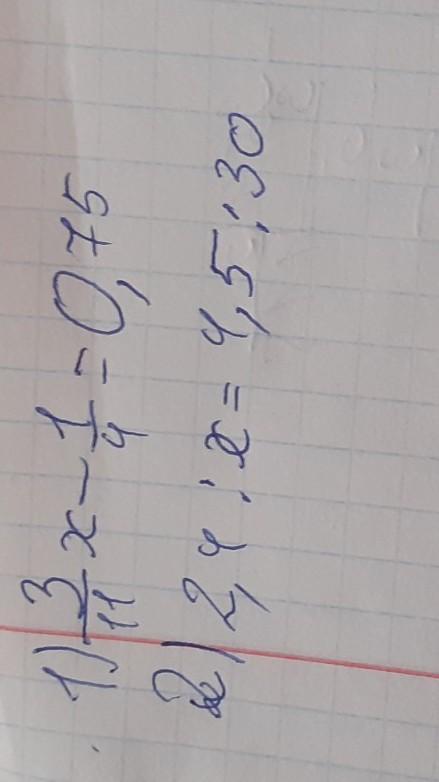 1) 3/11 x - 1/4 = 0,75
2) 2,4 : x = 4,5 : 30